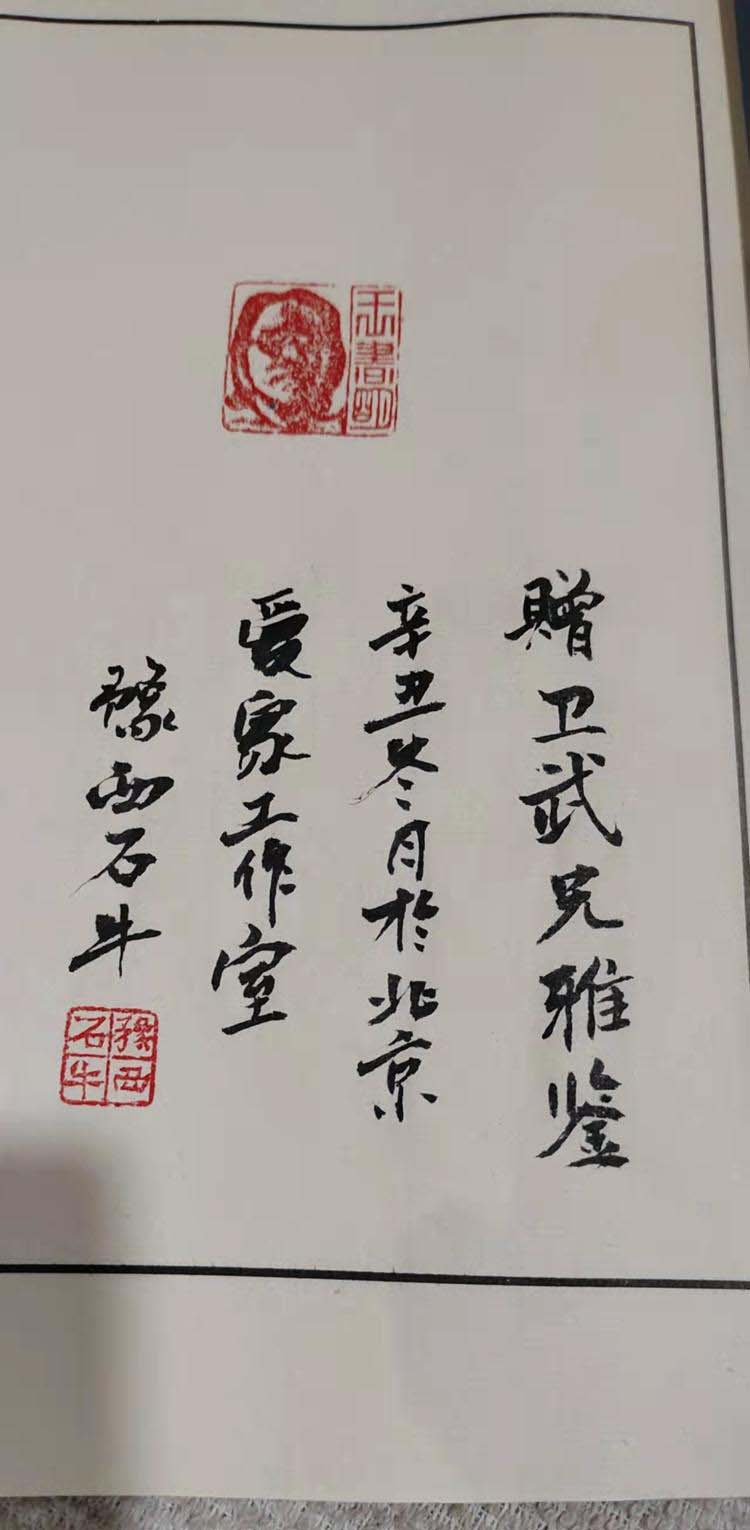 贈卫武兄雅鉴
辛丑冬月於北京
爱家工作室
豫西石牛
豫西
石牛